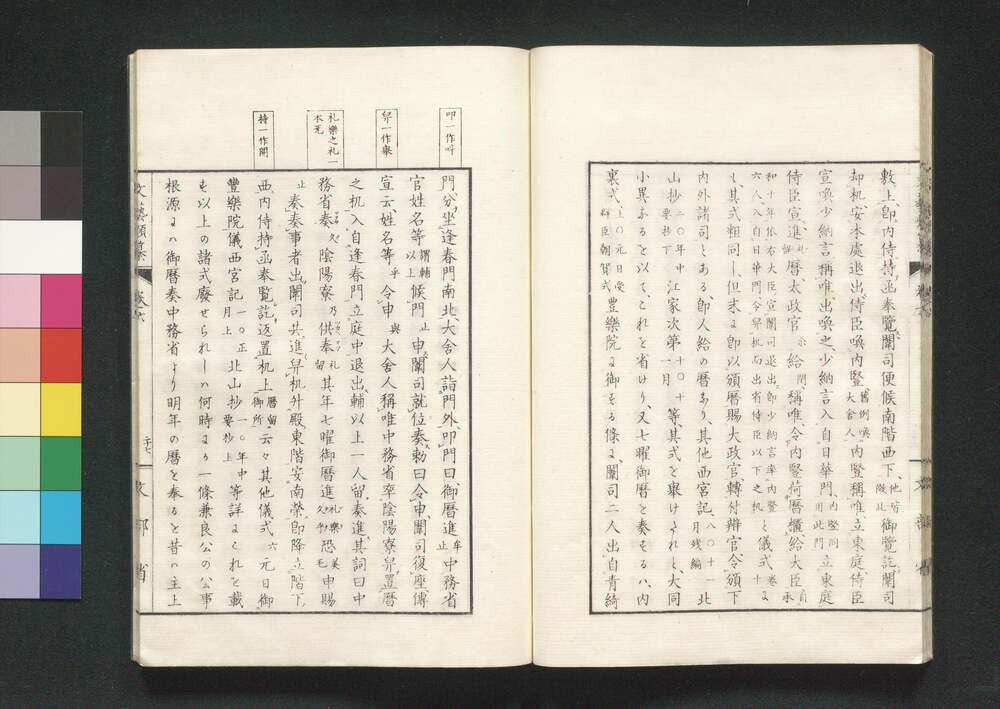 敷上、卽内侍持函奉覽、闈司便候南階西下、他皆倣此御覽訖闈司
却机、安本處退出、侍臣喚内豎、舊例喚大舍人内豎稱唯立東庭、侍臣
宣、喚少納言、稱唯出喚之、少納言入自日華門、内豎同用此門立東庭
侍臣宣、進禮曆、太政官給、稱唯、令内豎荷曆櫃給大臣
和十年依右大臣宣闈司退出、卽少納言率内豎六人、入自日華門、令舁机而出省侍臣以下之机と儀式卷十に
も其式粗同し、但末に卽以頒曆賜大政官、轉付辨官、令頒下
内外諸司とある、卽人給の曆あり、其他西宮記、月八〇十一殘編北
山抄、二〇年中要抄下江家次第十一月十〇十等、其式を擧けられしも大同
小異あるを以て、これを省けり、又七曜御曆を奏そるハ、内
裏式、上〇元日受群臣朝賀式豐樂院に御そる條に、闈司二人出自靑綺
門、分坐逢春門南北、大舍人詣門外、叩門曰、御曆進牟止中務省
官姓名等謂輔以上候門止申、闈司就位奏、勅曰、令申、闈司復座、傳
宣云、姓名等乎令申與、大舍人稱唯、中務省率陰陽寮、舁置曆
之机、入自逢春門、立庭中退出、輔以上一人留奏進、其詞曰、中
務省奏久、陰陽寮乃供奉留其年七曜御曆進禮樂久乎恐美毛申賜
止奏、奏事者出、闈司共進、舁机升殿東階、安南榮、卽降立階下
西、内侍持函奉覽訖、返置机上、曆留御所云々其他儀式六元日御
豐樂院儀西宮記一〇正月上北山抄一〇年中要抄上等詳よくれを載
も以上の諸式廢せられしハ何時より一條兼良公の公事
根源にハ御曆奏中務省より明年の曆を奏るを昔ハ主上
叩一作叫
舁一作擧
禮樂之禮一本无
持一作開
文部省